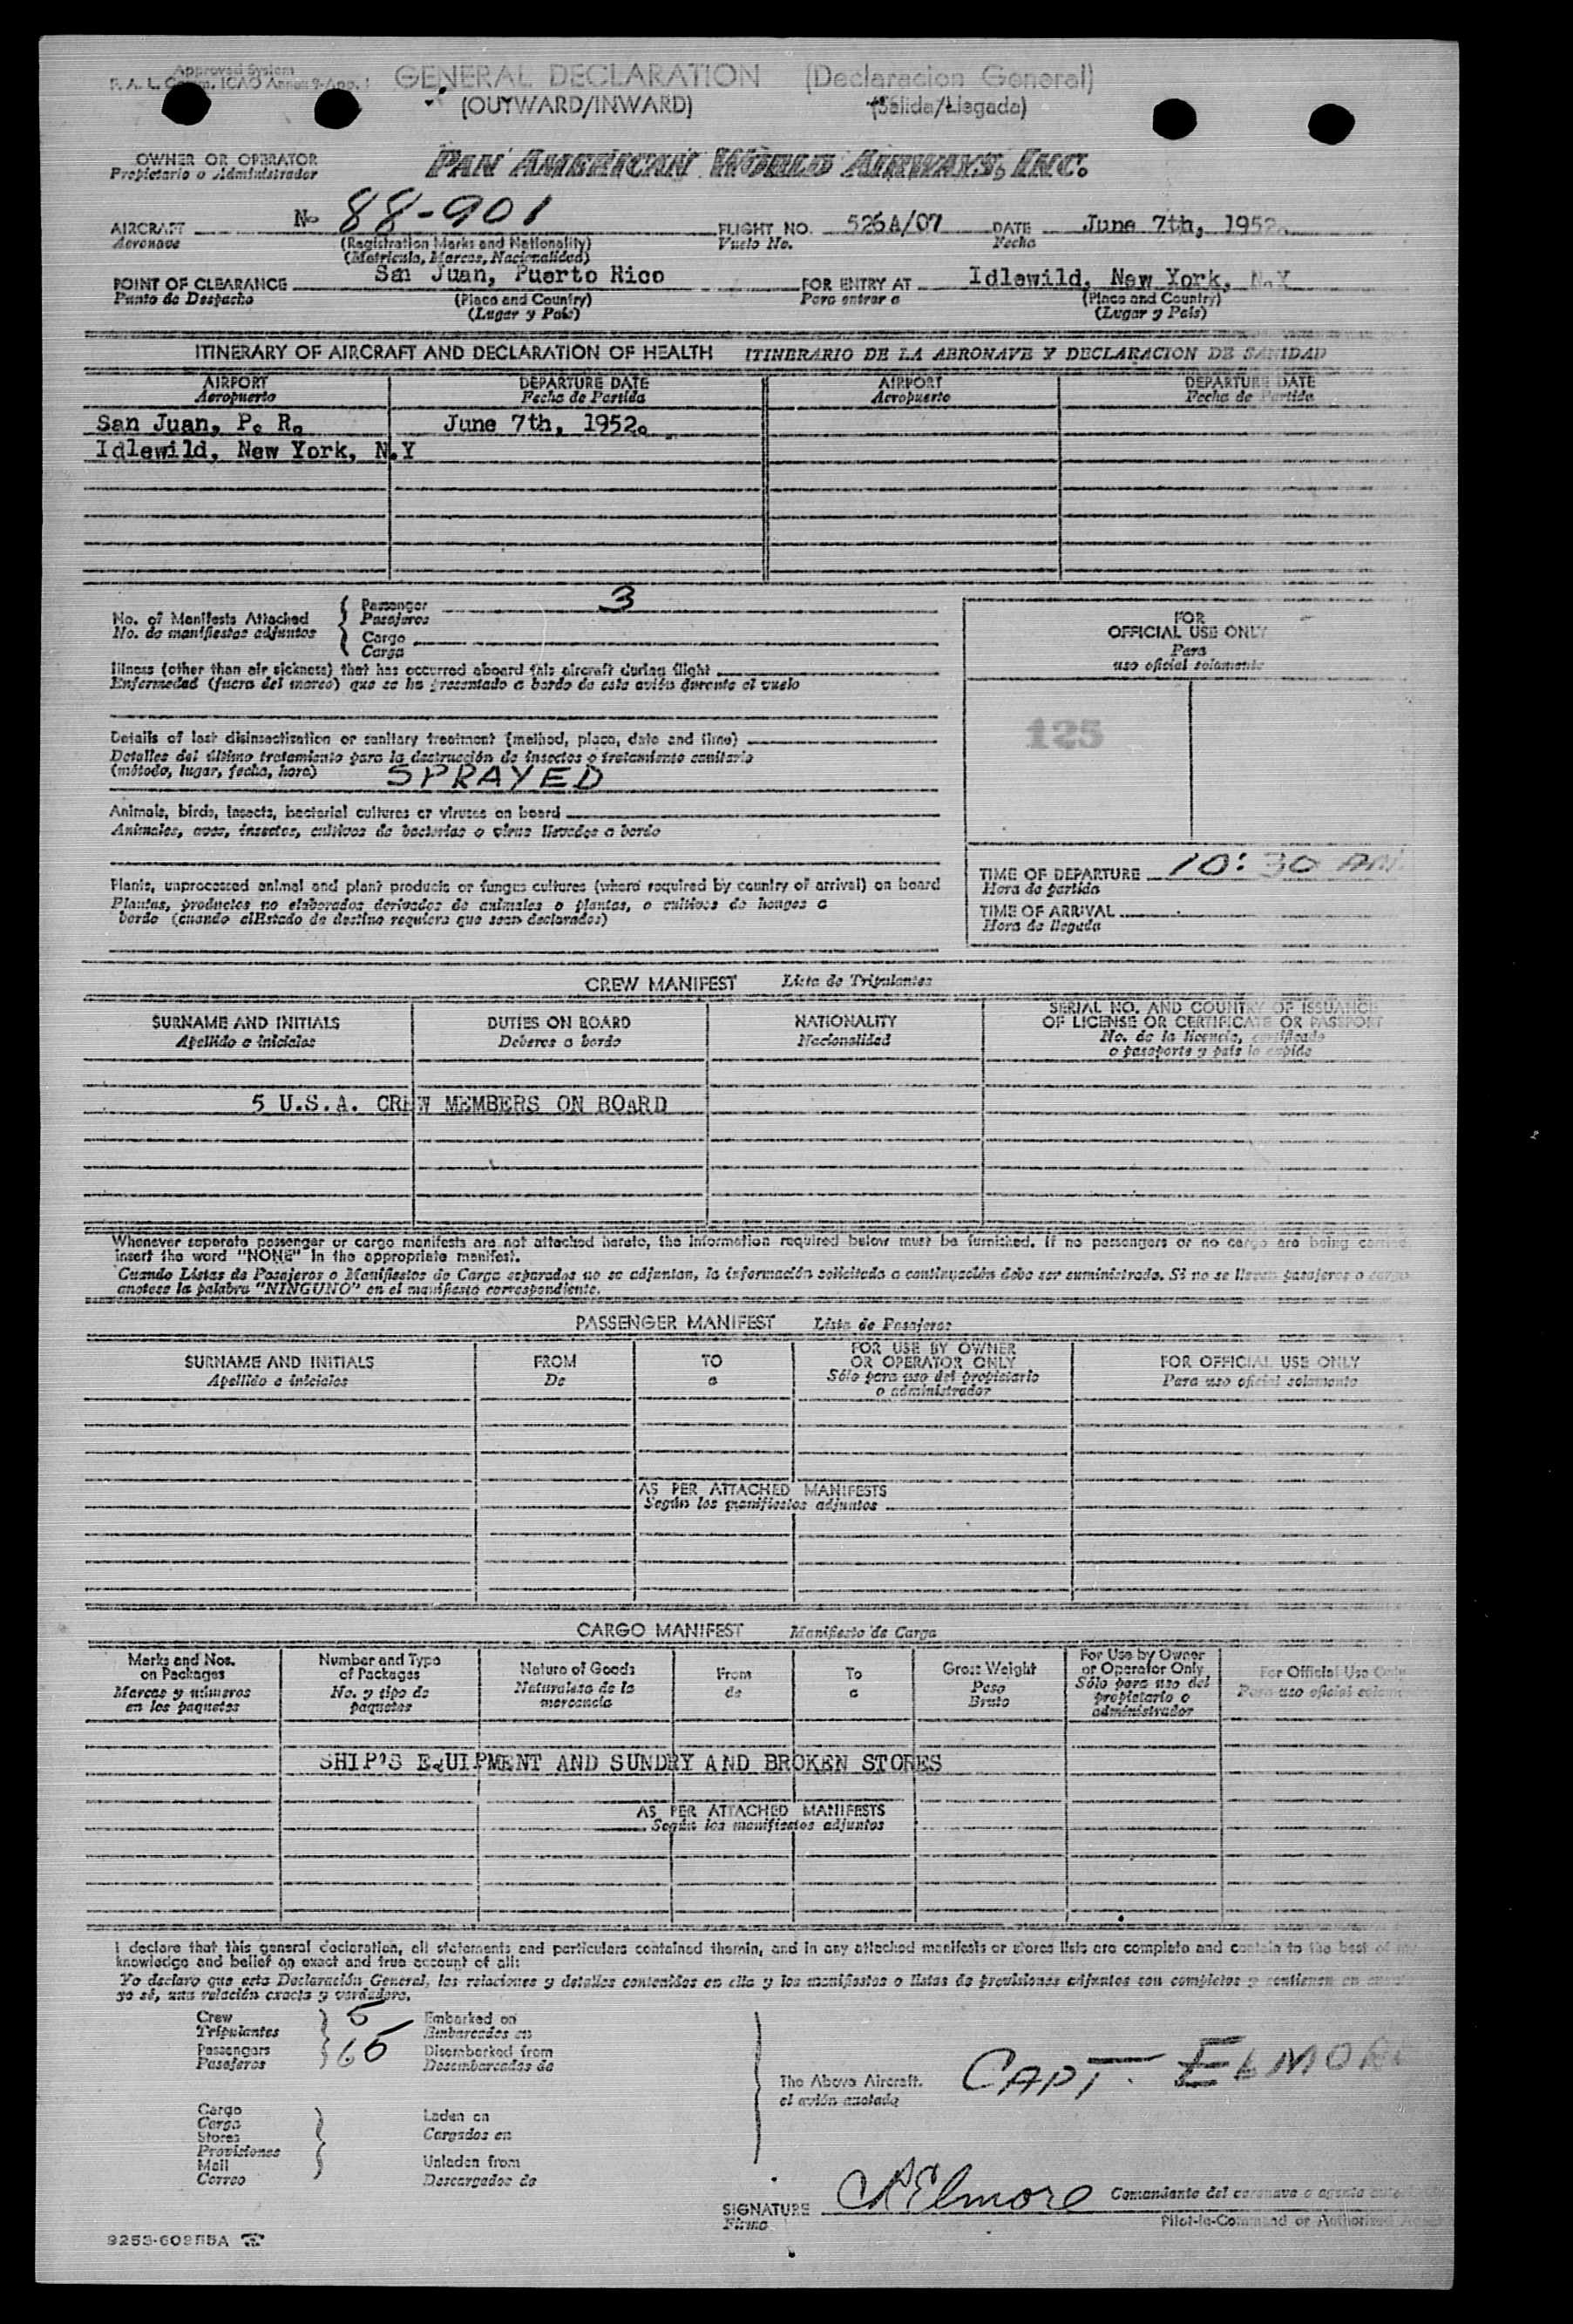 Approved System
F. A. L. Comm. ICAO Annex 9-App. 1
GENERAL DECLARATION (Declaracion General)
(OUTWARD/INWARD) (Salida/Llegada)
OWNER OR OPERATOR PAN AMERICAN WORLD AIRWAYS, INC.
Propietario o Administrador
AIRCRAFT No 88-901 FLIGHT NO. 526A/07 DATE June 7th, 1952.
Aeronave (Registration Marks and Nationality) Vuelo No. Fecha
(Matricula, Marcas, Nacionalidad)
POINT OF CLEARANCE San Juan, Puerto Rico FOR ENTRY AT Idlewild, New York, N.Y
Punto de Despacho (Place and Country) Para entrar a (Place and Country)
(Lugar y País) (Lugar y País)
ITINERARY OF AIRCRAFT AND DECLARATION OF HEALTH ITINERARIO DE LA AERONAVE Y DECLARACION DE SANIDAD
AIRPORT DEPARTURE DATE AIRPORT DEPARTURE DATE
Aeropuerto Fecha de Partida Aeropuerto Fecha de Partida
San Juan, P. R. June 7th, 1952.
Idlewild, New York, N.Y
No. of Manifests Attached Passenger 3
No. de manifiestos adjuntos Pasajeros
Cargo
Carga
FOR
OFFICIAL USE ONLY
Para
uso oficial solamente
125
Illness (other than air sickness) that has occurred aboard this aircraft during flight
Enfermedad (fuera del mareo) que se ha presentado a bordo de este avión durante el vuelo
Details of last disinsectisation or sanitary treatment (method, place, date and time)
Detalles del último tratamiento para la destrucción de insectos o tratamiento sanitario
(método, lugar, fecha, hora) SPRAYED
Animals, birds, insects, bacterial cultures or viruses on board
Animales, aves, insectos, cultivos de bacterias o virus llevados a bordo
Plants, unprocessed animal and plant products or fungus cultures (where required by country of arrival) on board
Plantas, productos no elaborados derivados de animales o plantas, o cultivos de hongos a
bordo (cuando elEstado de destino requiera que sean declarados)
TIME OF DEPARTURE 10:30 AM.
Hora de partida
TIME OF ARRIVAL
Hora de llegada
CREW MANIFEST Lista de Tripulantes
SURNAME AND INITIALS DUTIES ON BOARD NATIONALITY SERIAL NO. AND COUNTRY OF ISSUANCE
OF LICENSE OR CERTIFICATE OR PASSPORT
Apellido e iniciales Deberes a bordo Nacionalidad No. de la licencia, certificado
o pasaporte y país lo expide
5 U.S.A. CREW MEMBERS ON BOARD
Whenever separate passenger or cargo manifests are not attached hereto, the information required below must be furnished. If no passengers or no cargo are being carried
insert the word "NONE" in the appropriate manifest.
Cuando Listas de Pasajeros o Manifiestos de Carga separados no se adjuntan, la información solicitada a continuación debe ser suministrada. Si no se lleven pasajeros o carga
anotese la palabra "NINGUNO" en el manifiesto correspondiente.
PASSENGER MANIFEST Lista de Pasajeros
SURNAME AND INITIALS FROM TO FOR USE BY OWNER
OR OPERATOR ONLY FOR OFFICIAL USE ONLY
Apellido e iniciales De a Sólo para uso del propietario
o administrador Para uso oficial solamente
AS PER ATTACHED MANIFESTS
Según los manifiestos adjuntos
CARGO MANIFEST Manifiesto de Carga
Marks and Nos.
on Packages
Marcas y números
en los paquetes
Number and Type
of Packages
No. y tipo de
paquetes
Nature of Goods
Naturaleza de la
mercancia
From
de
To
a
Gross Weight
Peso
Bruto
For Use by Owner
or Operator Only
Sólo para uso del
propietario o
administrador
For Official Use Only
Para uso oficial solamente
SHIP'S EQUIPMENT AND SUNDRY AND BROKEN STORES
AS PER ATTACHED MANIFESTS
Según los manifiestos adjuntos
I declare that this general declaration, all statements and particulars contained therein, and in any attached manifests or stores lists are complete and contain to the best of my
knowledge and belief an exact and true account of all:
Yo declaro que esta Declaración General, las relaciones y detalles contenidos en ella y los manifiestos o listas de provisiones adjuntos son completos y contienen en cuanto
yo sé, una relación exacta y verdadera.
Crew 5 Embarked on
Tripulantes Embarcados en
Passengers 65 Disembarked from
Pasajeros Desembarcados de
The Above Aircraft. CAPT. ELMORE
el avión anotado
Cargo
Carga
Stores
Provisiones
Mail
Correo
Laden on
Cargados en
Unladen from
Descargados de
SIGNATURE Elmore Comandante del aeronave o agente
Firma Pilot-in-Command or Authorized
9253-609